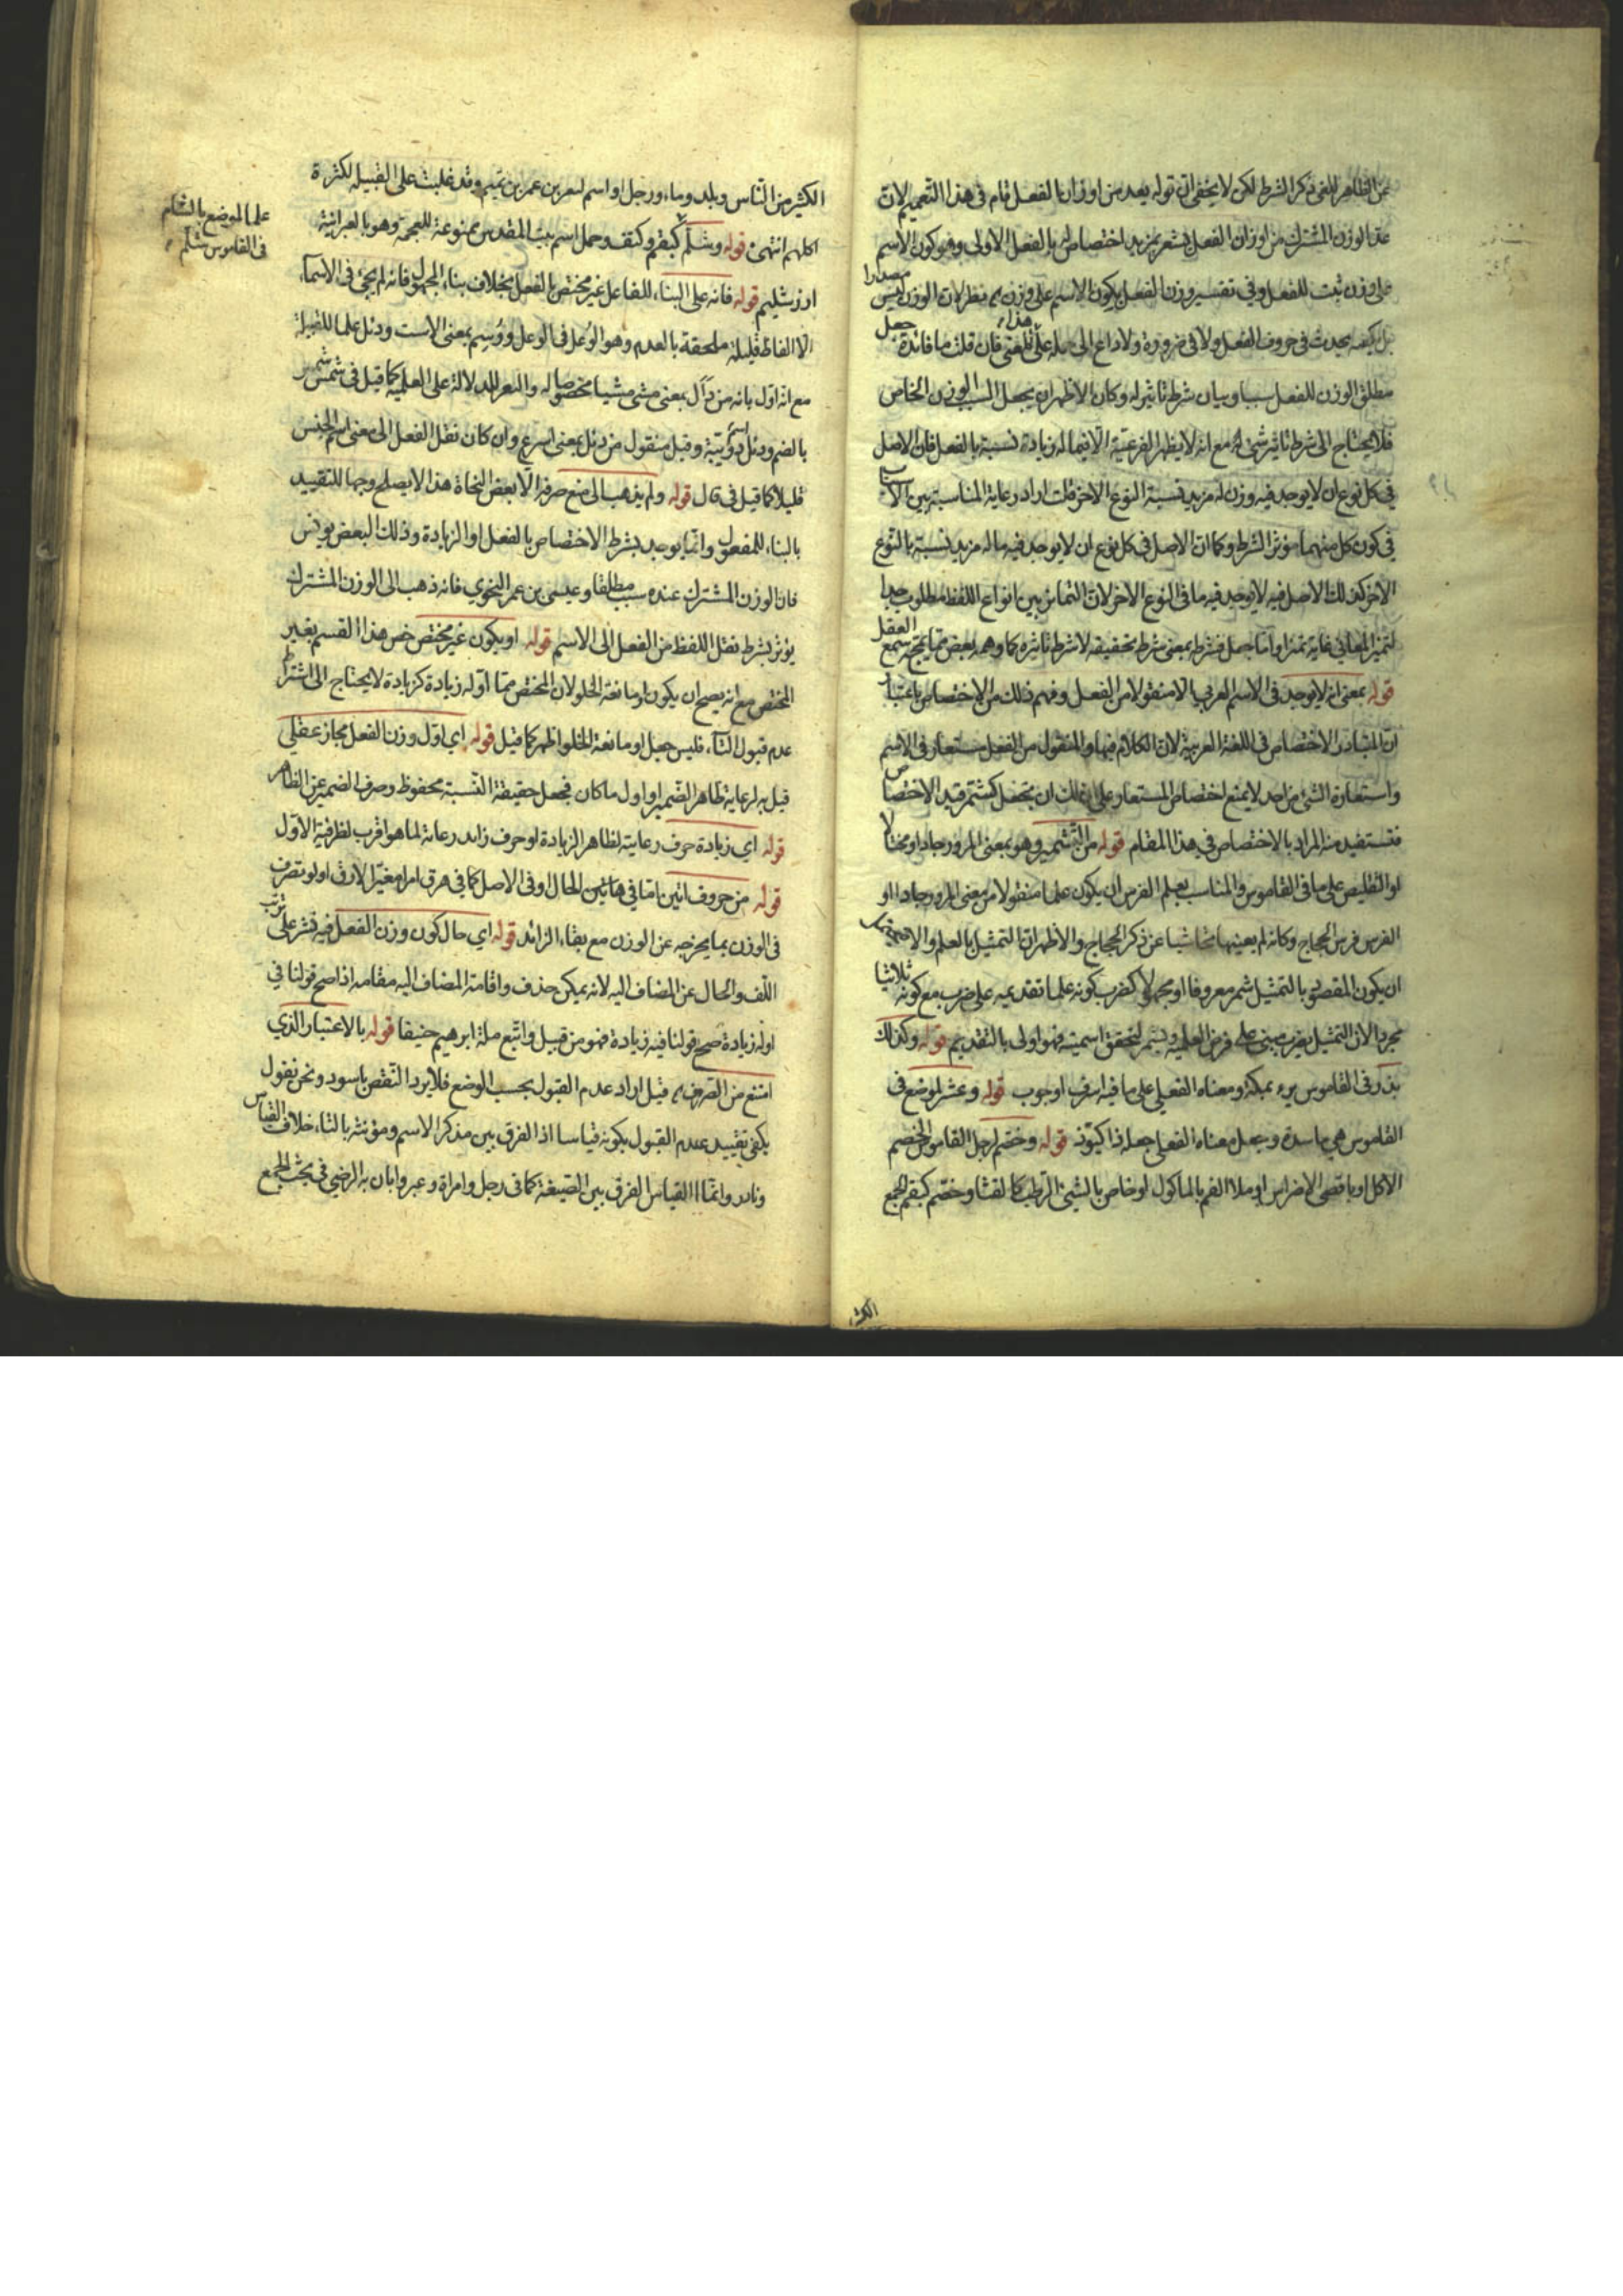 عن الظاهر للغى ذكر الشرط لكن لا يخفى ان قوله بعد من اوزان الفعل تام فى هذا التعميم لان
عد الوزن المشترك من اوزان الفعل يشعر بمزيد اختصاص له بالفعل الاولى وهو كون الاسم
على وزن ثبت للفعل وفى تفسير وزن الفعل بكون الاسم على وزن نظر لان الوزن ليس مصدرا
بل كيفية يحدث فى حروف الفعل ولا فى ضرورة ولا داع الى حمله على هذا المعنى فان قلت ما فائدة جعل
مطلق الوزن للفعل سببا وبيان شرط تأثير له وكان الاظهر ان يجعل السبب الوزن الخاص
فلا يحتاج الى شرط تاثير شئ له مع انه لا يظهر الفرعية الا فيما له زيادة نسبة بالفعل فان الاصل
فى كل نوع ان لا يوجد فيه وزن له مزيد نسبة النوع الاخر قلت اراد رعاية المناسبة بين الاسباب
فى كون كل منهما مؤثر الشرط وكما ان الاصل فى كل نوع ان لا يوجد فيه ما له مزيد نسبة بالنوع
الاخر كذلك الاصل فيه لا يوجد فيه ما فى النوع الاخر لان التمايز بين انواع اللفظ مطلوب جدا
لتميز المعانى غاية تميز واما جعل فشرطه بمعنى شرط تحقيقه لا شرط تاثيره كما وهمه بعض مما يمجه سمع العقل
قوله بمعنى انه لا يوجد فى الاسم العربى الا منقولا من الفعل وفهم ذلك من الاختصاص باعتبار
ان المتبادر الاختصاص فى اللغة العربية لان الكلام فيها والمنقول من الفعل مستعار فى الاسم
واستعارة الشئ من احد لا يمنع اختصاص المستعار على انه لك ان تجعل كشمر قيد الاختصاص
فتستفيد منه المراد بالاختصاص فى هذا المقام قوله من التشمير وهو بمعنى المرور جادا او مختالا
او التقليص على ما فى القاموس والمناسب بعلم الفرس ان يكون علما منقولا من معنى المرور جادا او
الفرس فرس الحجاج وكانه لم يعينها تحاشيا عن ذكر الحجاج والاظهر ان التمثيل بالعلم والا
ان يكون المقصود بالتمثيل شمر معروفا او مجهولا كضرب كونه علما تقديمه على ضرب مع كونه ثلاثيا
مجردا لان التمثيل بضرب مبنى على فرض العلمية وبشمر لتحقق اسميته فهو اولى بالتقديم قوله وكذلك
بذر فى القاموس بئر بمكة ومعناه الفعلى على ما فيه اسرف او جوب قوله وعثر لموضع فى
القاموس هى ماسدة وجعل معناه الفعلى جعله ذا قوله وخضم لرجل القاموس الخضم
الاكل او باقصى الاضراس او ملأ الفم بالماكول او خاص بالشئ الرطب كالقثاء وخضم كبقم الجمع
الكثير
الكثير من الناس وبلد وماء ورجل او اسم لعنبر بن عمر بن تميم وقد غلبت على القبيلة لكثرة
اكلهم انتهى قوله وشلم كبقم وكنقد وحمل اسم بيت المقدس ممنوعة للعجمة وهو بالعبرانية
اورشليم قوله فانه على البناء للفاعل غير مختص بالفعل بخلاف بناء المجهول فانه لم يجئ فى الاسماء
الا الفاظ قليلة ملحقة بالعدم وهو الوعل فى الوعل ووسم بمعنى الاست ودئل علما للقبيلة
مع انه اول بانه من دأل بمعنى مشى مشيا مخصوصا له والتغير للدلالة على العلمية كما قيل فى شمس شمس
بالضم ودئل اسم دويبة وقيل منقول من دئل بمعنى اسرع وان كان نقل الفعل الى معنى اسم الجنس
قليلا كما قيل فى قال قوله ولم يذهب الى منع صرفه الا بعض النحاة هذا لا يصلح وجها للتقييد
بالبناء للمفعول وانما يوجد بشرط الاختصاص بالفعل او الزيادة وذلك البعض يونس
فان الوزن المشترك عنده سبب مطلقا وعيسى بن عمر النحوي فانه ذهب الى الوزن المشترك
يؤثر بشرط نقل اللفظ من الفعل الى الاسم قوله او يكون غير مختص خص هذا القسم بغير
المختص مع انه يصح ان يكون او مانعة الخلو لان المختص مما اوله زيادة كزيادة لا يحتاج الى اشتراط
عدم قبول التاء فليس جعل او مانعة الخلو اظهر كما قيل قوله اي اول وزن الفعل مجاز عقلي
قيل به لرعاية ظاهر الضمير او اول ما كان فجعل حقيقة النسبة محفوظ وصرف الضمير عن الظاهر
قوله اي زيادة حرف رعاية لظاهر الزيادة او حرف زايد رعاية لما هو اقرب لظرفية الاول
قوله من حروف اتين اما في هاتين الحال او فى الاصل كما فى هرق امرا مغيرا لارق او لو تصرف
فى الوزن بما يخرجه عن الوزن مع بقاء الزائد قوله اي حال كون وزن الفعل فيه نشر على ترتيب
اللف والحال عن المضاف اليه لانه يمكن حذف واقامة المضاف اليه مقامه اذا صح قولنا في
اوله زيادة صح قولنا فيه زيادة فهو من قبيل واتبع ملة ابرهيم حنيفا قوله بالاعتبار الذي
امتنع من الصرف قيل اراد عدم القبول بحسب الوضع فلا يرد النقص باسود ونحن نقول
يكفى تقييد عدم القبول بكونه قياسا اذ الفرق بين مذكر الاسم ومؤنثه بالتاء خلاف القياس
ونادر وانما القياس الفرق بين الصيغة كما فى رجل وامراة وعير واتان به الرضي فى بحث الجمع
علما لموضع بالشام
فى القاموس شلم